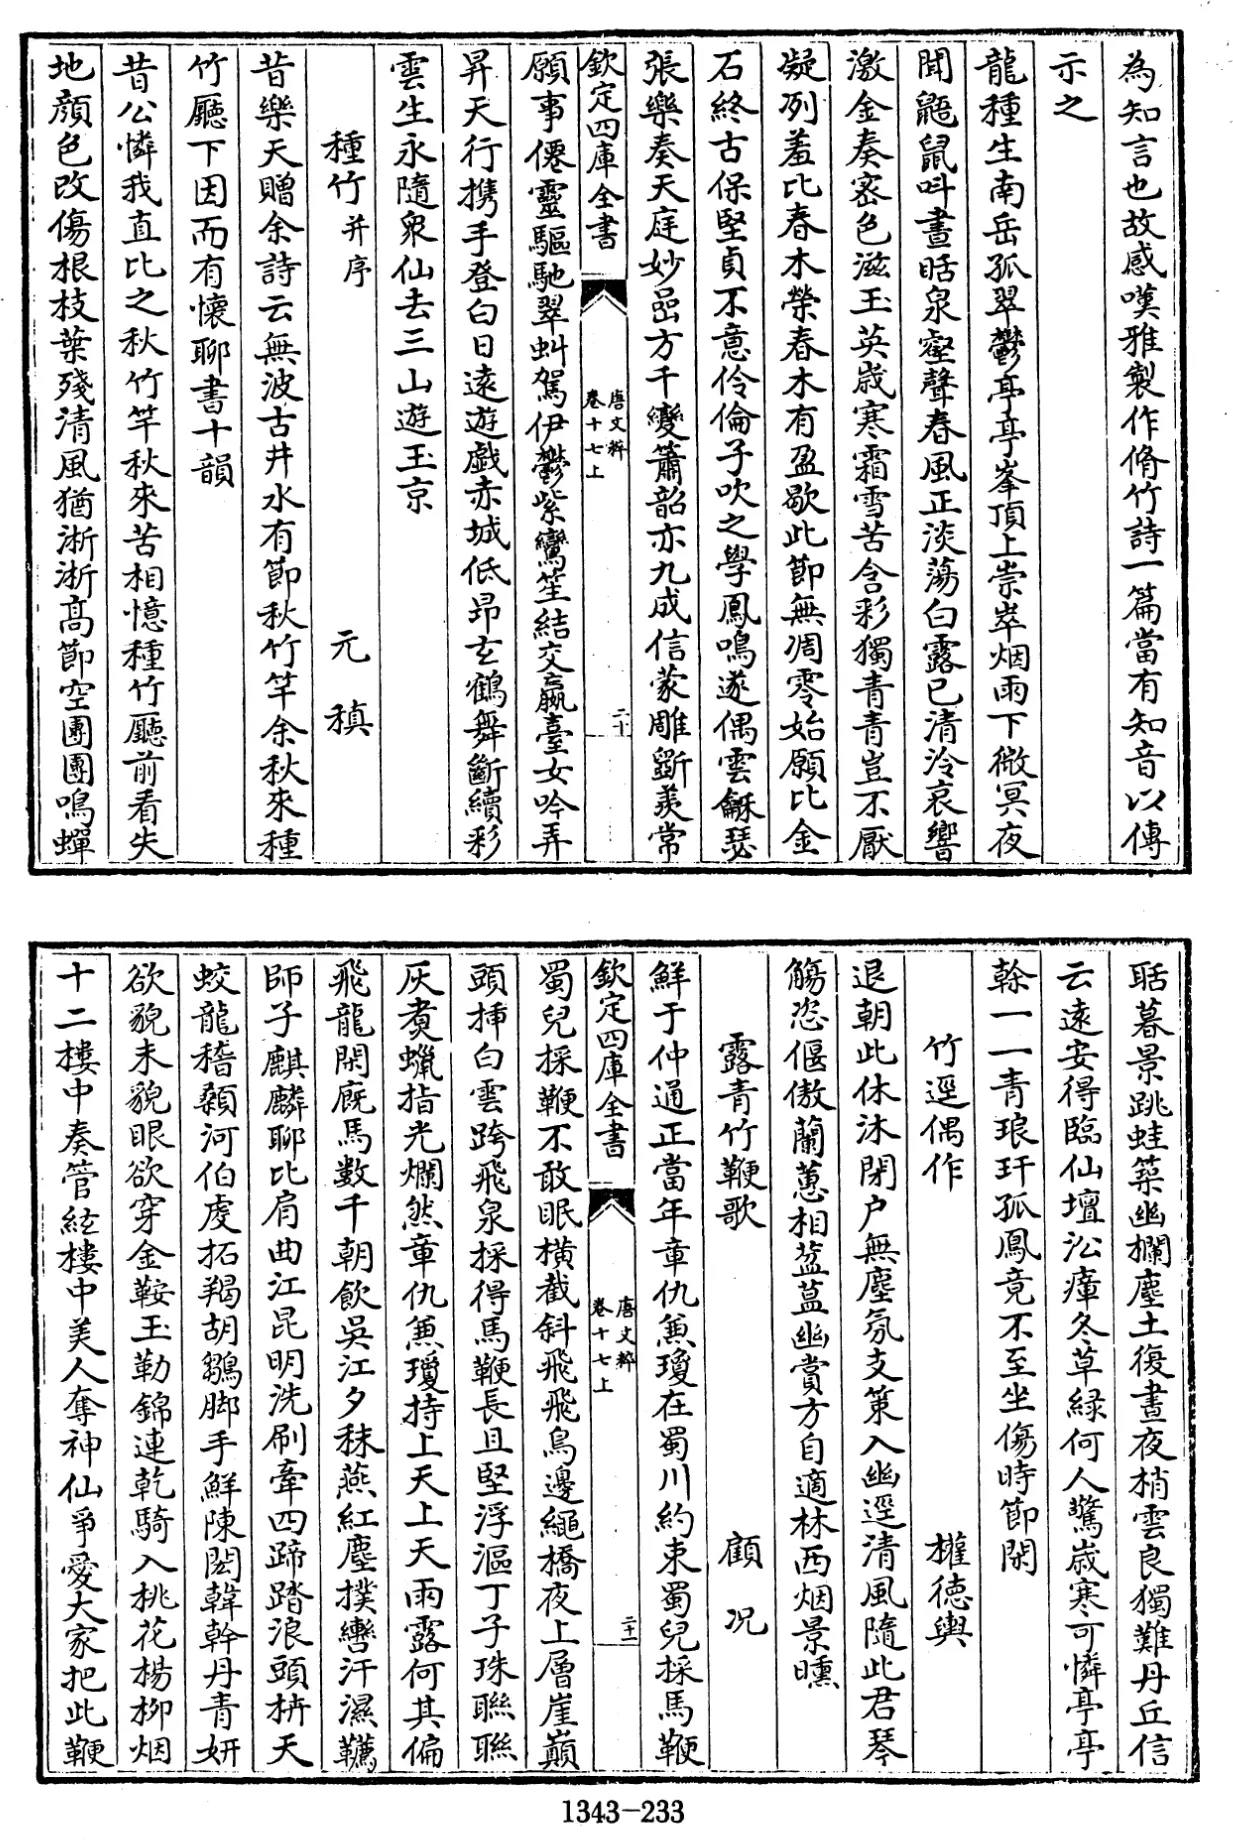 為知言也故感嘆雅製作脩竹詩一篇當有知音以傳
示之
龍種生南岳孤翠鬱亭亭峯頂上崇崒烟雨下微冥夜
聞鼯鼠叫晝聒泉壑聲春風正淡蕩白露已清泠哀響
激金奏密色滋玉英歳寒霜雪苦含彩獨青青豈不厭
凝冽羞比春木榮春木有盈歇此節無凋零始願比金
石終古保堅貞不意伶倫子吹之學鳳鳴遂偶雲龢瑟
張樂奏天庭妙曲方千變簫韶亦九成信蒙雕斵羨常
欽定四庫全書
唐文粹
卷十七上
二十
願事僊靈驅馳翠虯駕伊鬱紫鸞笙結交嬴臺女吟弄
昇天行攜手登白日遠遊戲赤城低昂玄鶴舞斷續彩
雲生永隨衆仙去三山遊玉京
種竹并序 元稹
昔樂天贈余詩云無波古井水有節秋竹竿余秋來種
竹廳下因而有懷聊書十韻
昔公憐我直比之秋竹竿秋來苦相憶種竹廳前看失
地顔色改傷根枝葉殘清風猶淅淅高節空團團鳴蟬
聒暮景跳蛙簗幽欄塵土復晝夜梢雲良獨難丹丘信
云遠安得臨仙壇沴瘴冬草緑何人驚歳寒可憐亭亭
幹一一青琅玕孤鳳竟不至坐傷時節闌
竹逕偶作 權德輿
退朝此休沐閉户無塵氛支策入幽逕清風隨此君琴
觴恣偃傲蘭蕙相葐蒀幽賞方自適林西烟景曛
露青竹鞭歌 顧况
鮮于仲通正當年章仇兼瓊在蜀川約束蜀兒採馬鞭
欽定四庫全書
唐文粹
卷十七上
二十一
蜀兒採鞭不敢眠横截斜飛飛鳥邊繩橋夜上層崖巔
頭挿白雲跨飛泉採得馬鞭長且堅浮漚丁子珠聯聯
灰煑蠟指光爛然章仇兼瓊持上天上天雨露何其偏
飛龍閑厩馬數千朝飲吳江夕秣燕紅塵撲轡汗濕韉
師子麒麟聊比肩曲江昆明洗刷牽四蹄踏浪頭枿天
蛟龍稽顙河伯虔拓羯胡鶵脚手鮮陳閎韓幹丹青妍
欲貌未貌眼欲穿金鞍玉勒錦連乾騎入桃花楊柳烟
十二樓中奏管絃樓中美人奪神仙爭愛大家把此鞭
1343-233